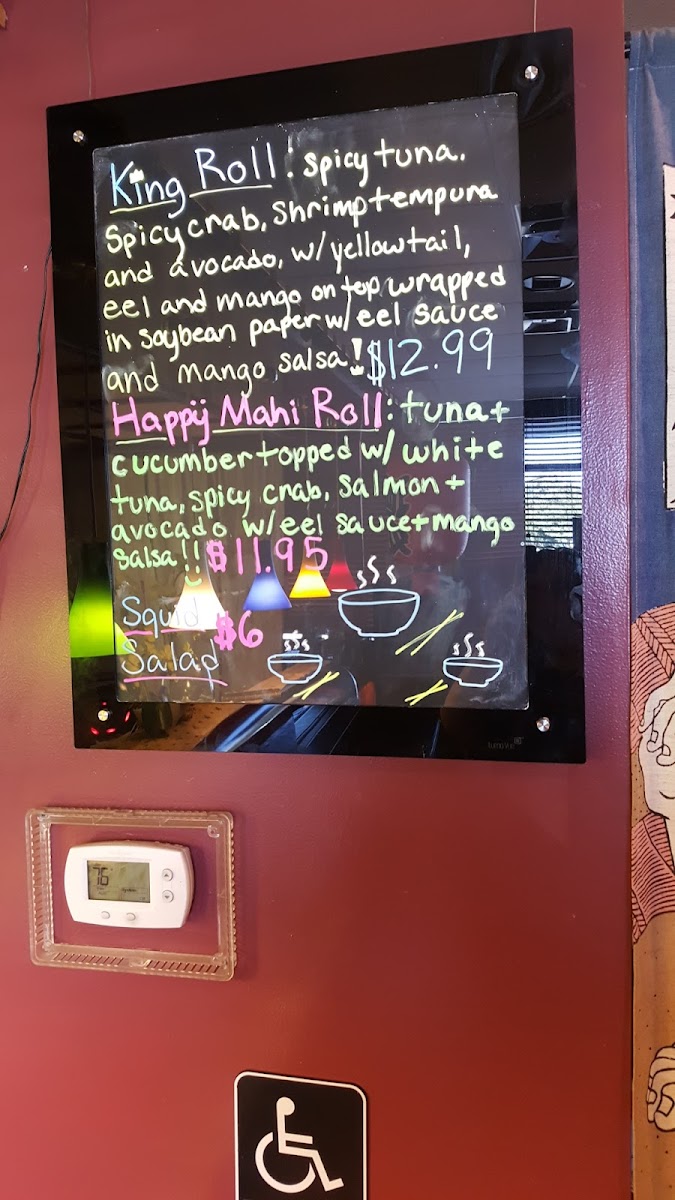 King Roll: spicy tuna.
Spicy crab, shrimp tempura
and avocado, w/ yellowtail,
eel and mango on top wrapped
in soybean paper w/ eel sauce
and mango salsa! $12.99
Happy Mahi Roll: tuna +
cucumber topped w/ white
tuna, spicy crab, salmon +
avocado w/ eel sauce + mango
salsa!! $11.95
Squid $6
Salad
76